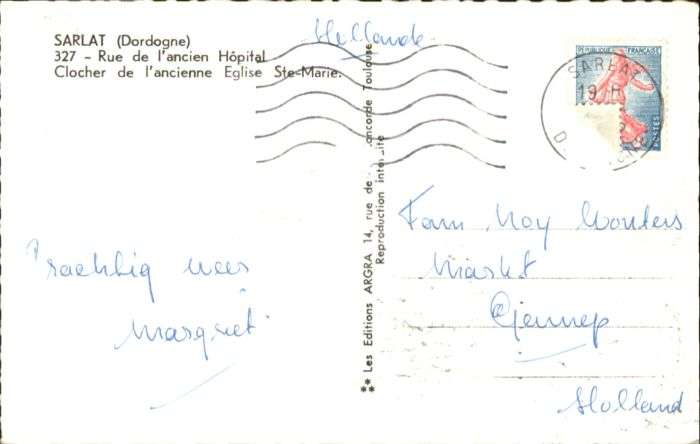 SARLAT (Dordogne)
327 - Rue de l'ancien Hôpital
Clocher de l'ancienne Eglise Ste-Marie.
Hollande
REPUBLIQUE FRANÇAISE
POSTES
SARLAT
19 H
** Les Editions ARGRA 14, rue de oncorde Toulouse
Reproduction inter ite
Prachtig weer
Margriet
Fam Noy Wouters
Markt
Gennep
Holland